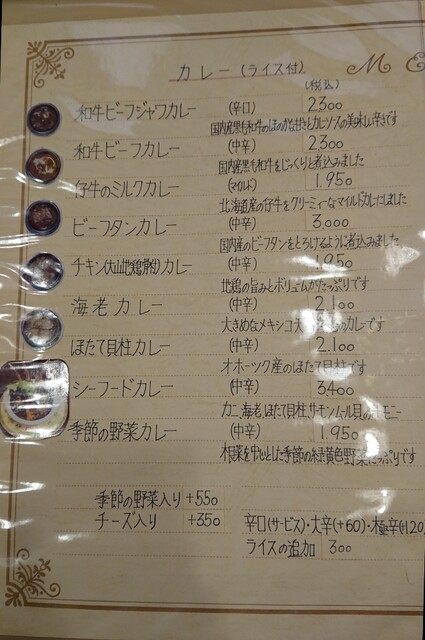 カレー(ライス付)
(税込)
M E
和牛ビーフジャワカレー (辛口) 2300
国内産黒毛和牛のほのかな甘さとカルソースの美味しい辛さです
和牛ビーフカレー (中辛) 2,300
国内産黒毛和牛をじっくりと煮込みました
仔牛のミルクカレー (マイルド) 1.950
北海道産の仔牛をクリーミィなマイルドカレーにしました
ビーフタンカレー (中辛) 3,000
国内産のビーフタンをとろけるように煮込みました
チキン(大山地鶏骨付)カレー (中辛) 1950
地鶏の旨みとボリュームがたっぷりです
海老カレー (中辛) 2.100
大きめなメキシコ カレーです
ほたて貝柱カレー (中辛) 2.100
オホーツク産のほたて貝柱です
シーフードカレー (中辛) 3,400
カニ、海老、ほたて貝柱、サーモン、ムール貝のハーモニー
季節の野菜カレー (中辛) 1.950
根菜を中心とした季節の緑黄色野菜たっぷりです
季節の野菜入り +550
チーズ入り +350
辛口(サービス)・大辛(+60)・極辛(+120
ライスの追加 300